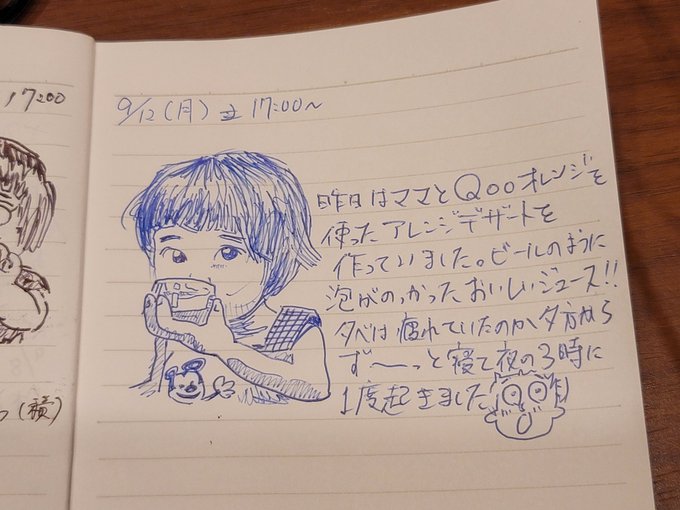 17:00
9/12(月) 17:00〜
昨日はママとQooオレンジを
使ったアレンジデザートを
作っていました。ビールのように
泡がのっかったおいしいジュース!!
夕べは疲れていたのか、夕方から
ず〜っと寝て夜の3時に
1度起きました
(積)